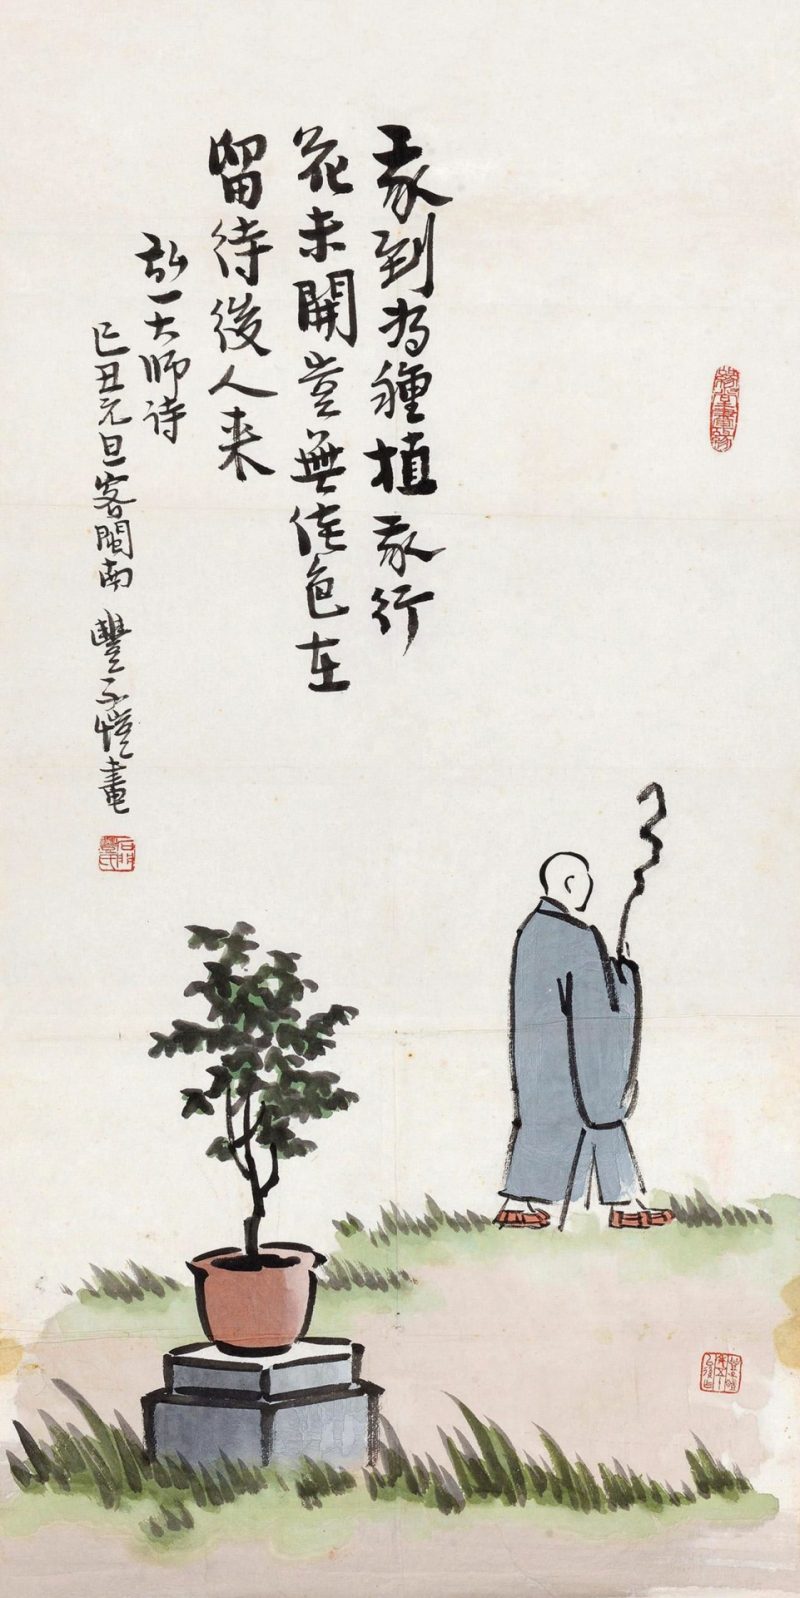 我到为種植我行
花未開豈無佳色在
留待後人来
弘一大師詩
己丑元旦客閩南 豐子愷畫
石門豐氏